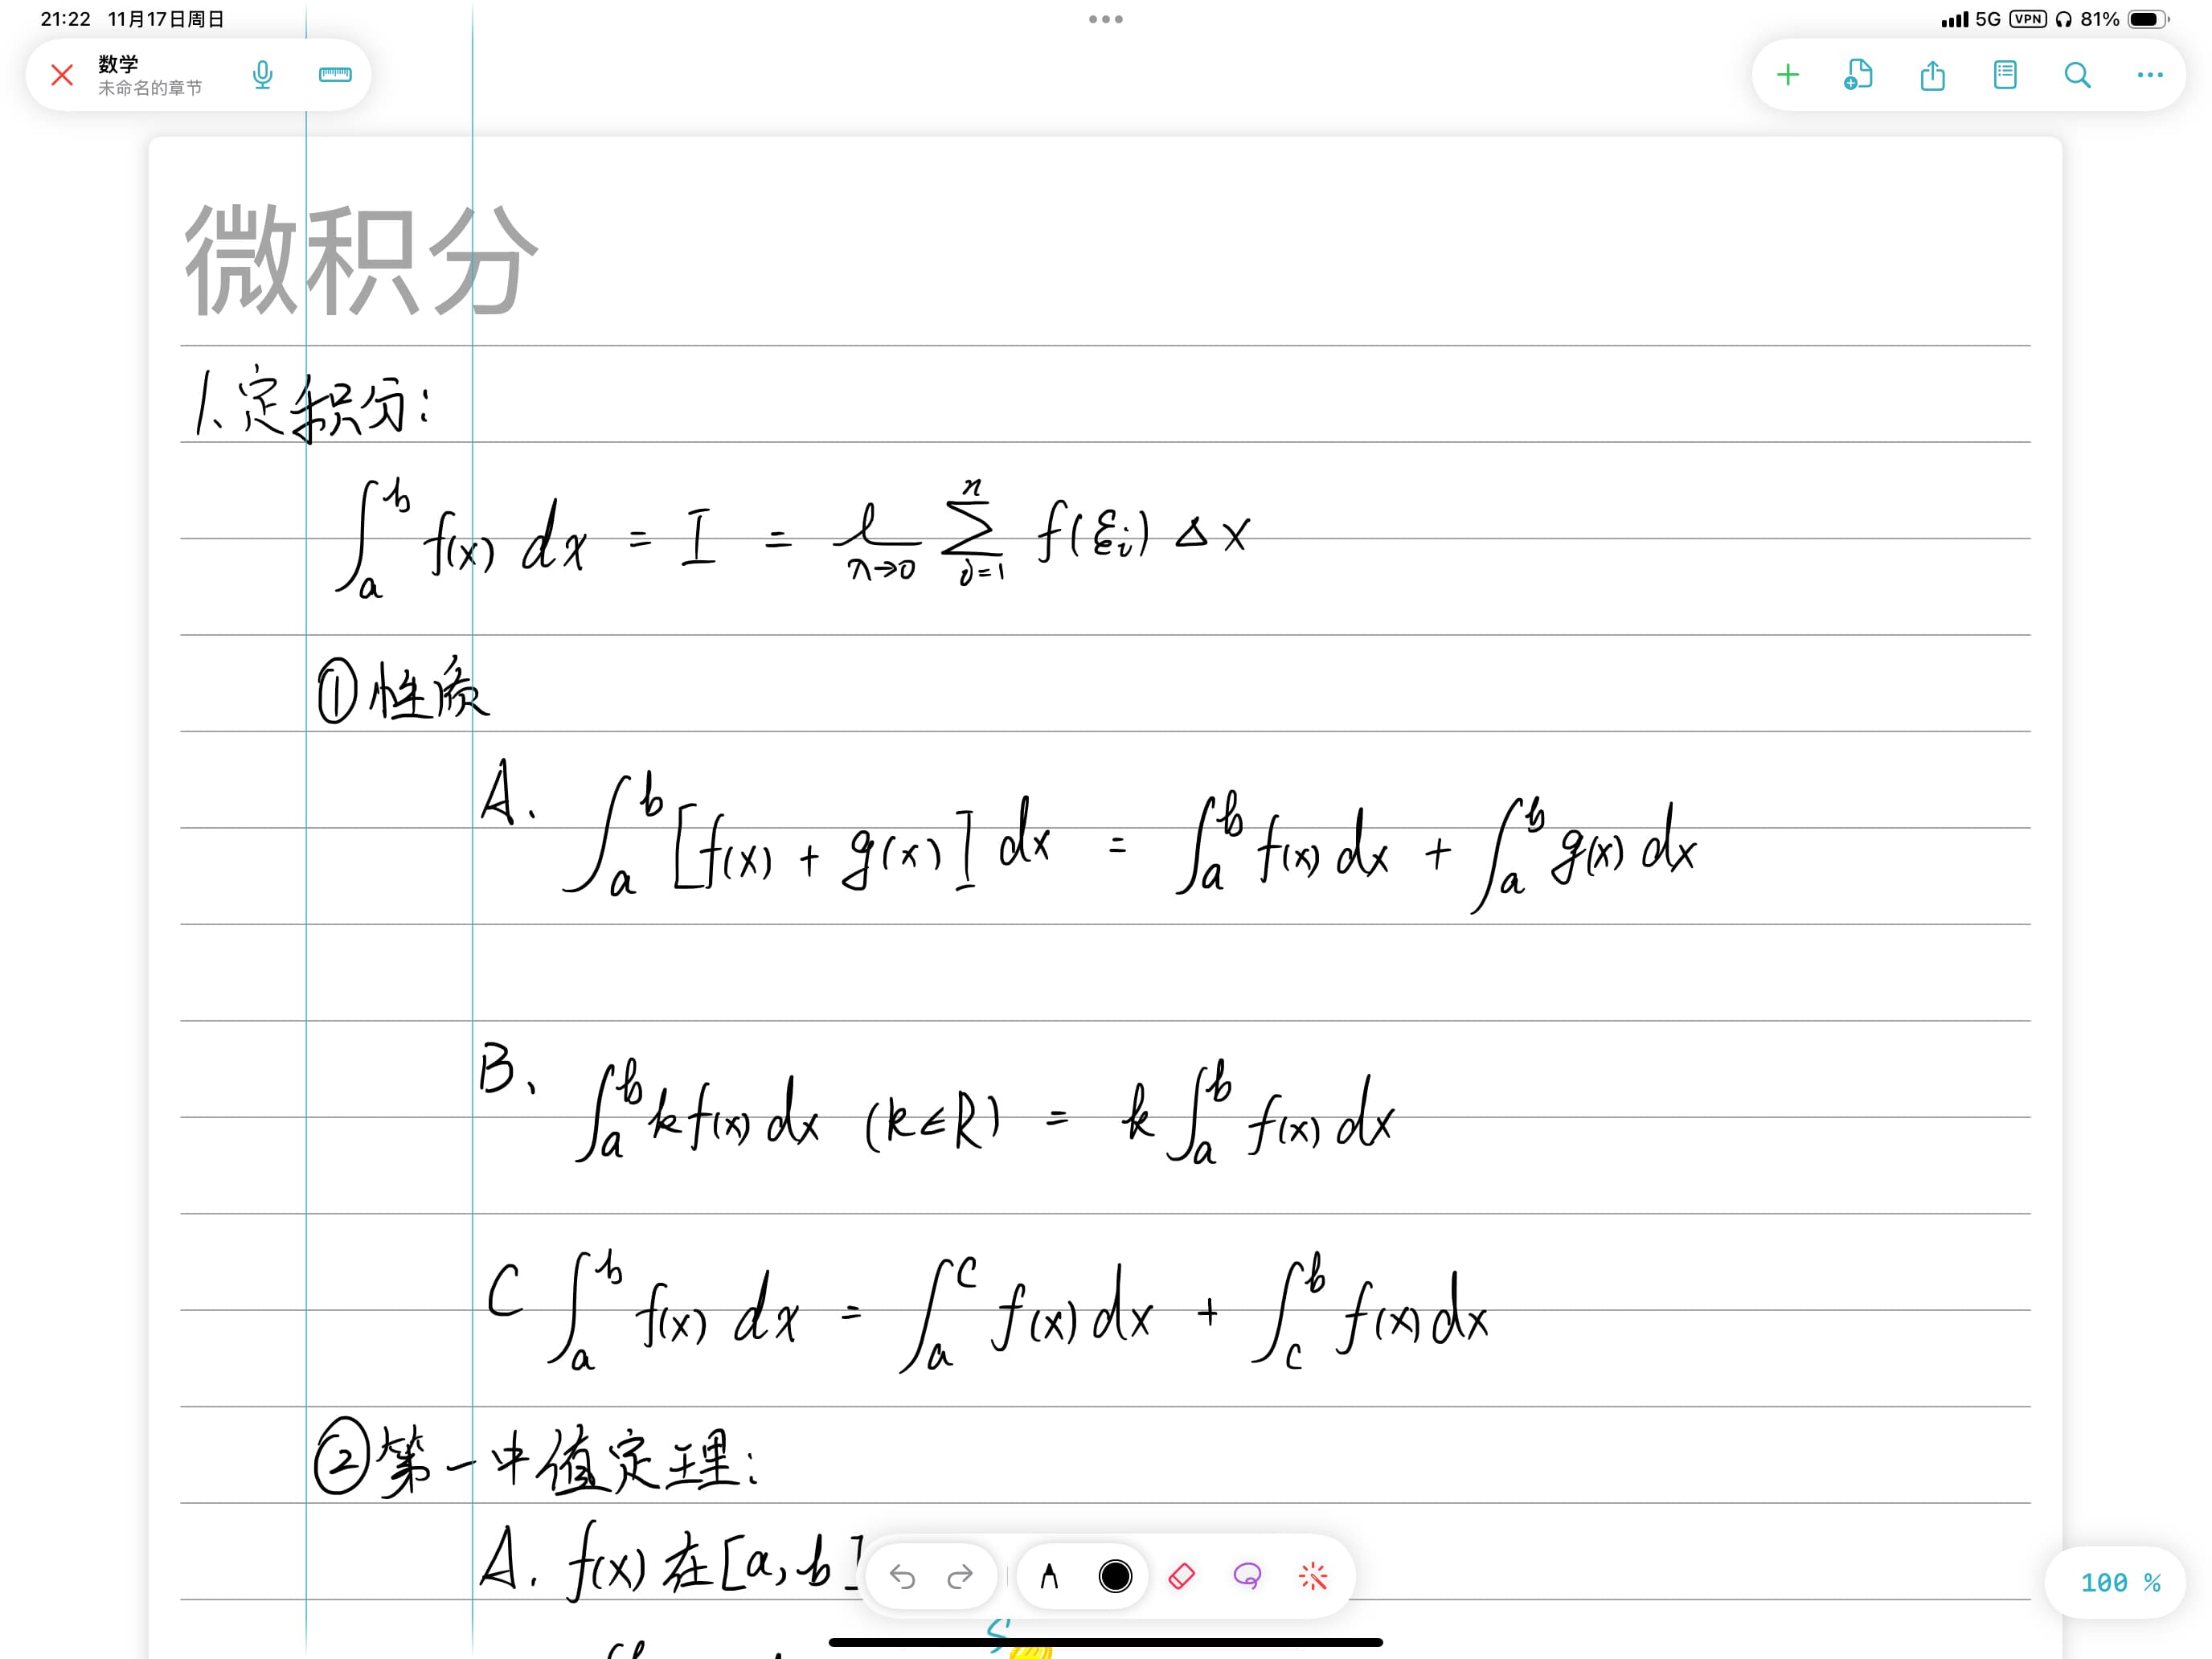 21:22 11月17日周日
5G VPN 81%
数学
未命名的章节
微积分
1、定积分:
∫_a^b f(x) dx = I = l_{λ→0} ∑_{i=1}^n f(ξ_i) Δx
①性质
A. ∫_a^b [f(x) + g(x)] dx = ∫_a^b f(x) dx + ∫_a^b g(x) dx
B、 ∫_a^b k f(x) dx (k∈R) = k ∫_a^b f(x) dx
C ∫_a^b f(x) dx = ∫_a^c f(x) dx + ∫_c^b f(x) dx
②第一中值定理:
A. f(x) 在 [a, b]
100 %